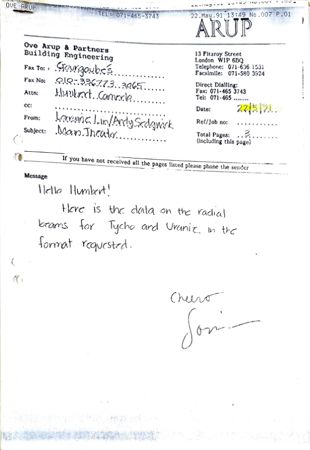 OVE ARUP TEL: 071-465-3743 22.May.91 13:49 No.007 P.01
ARUP
Ove Arup & Partners
Building Engineering
13 Fitzroy Street
London W1P 6BQ
Telephone: 071-636 1531
Facsimile: 071-580 3924
Fax To:
Fax No:
Attn: Humbert
cc:
From: Lin/Andy Sedgwick
Subject: Main Theater
Direct Dialling:
Fax: 071-465 3743
Tel: 071-465 ......
Date: 22/5/91
Ref/Job no:
Total Pages: 3
(including this page)
If you have not received all the pages listed please phone the sender
Message
Hello Humbert!
Here is the data on the radial
beams for Tycho and Uranie, in the
format requested.
Cheero